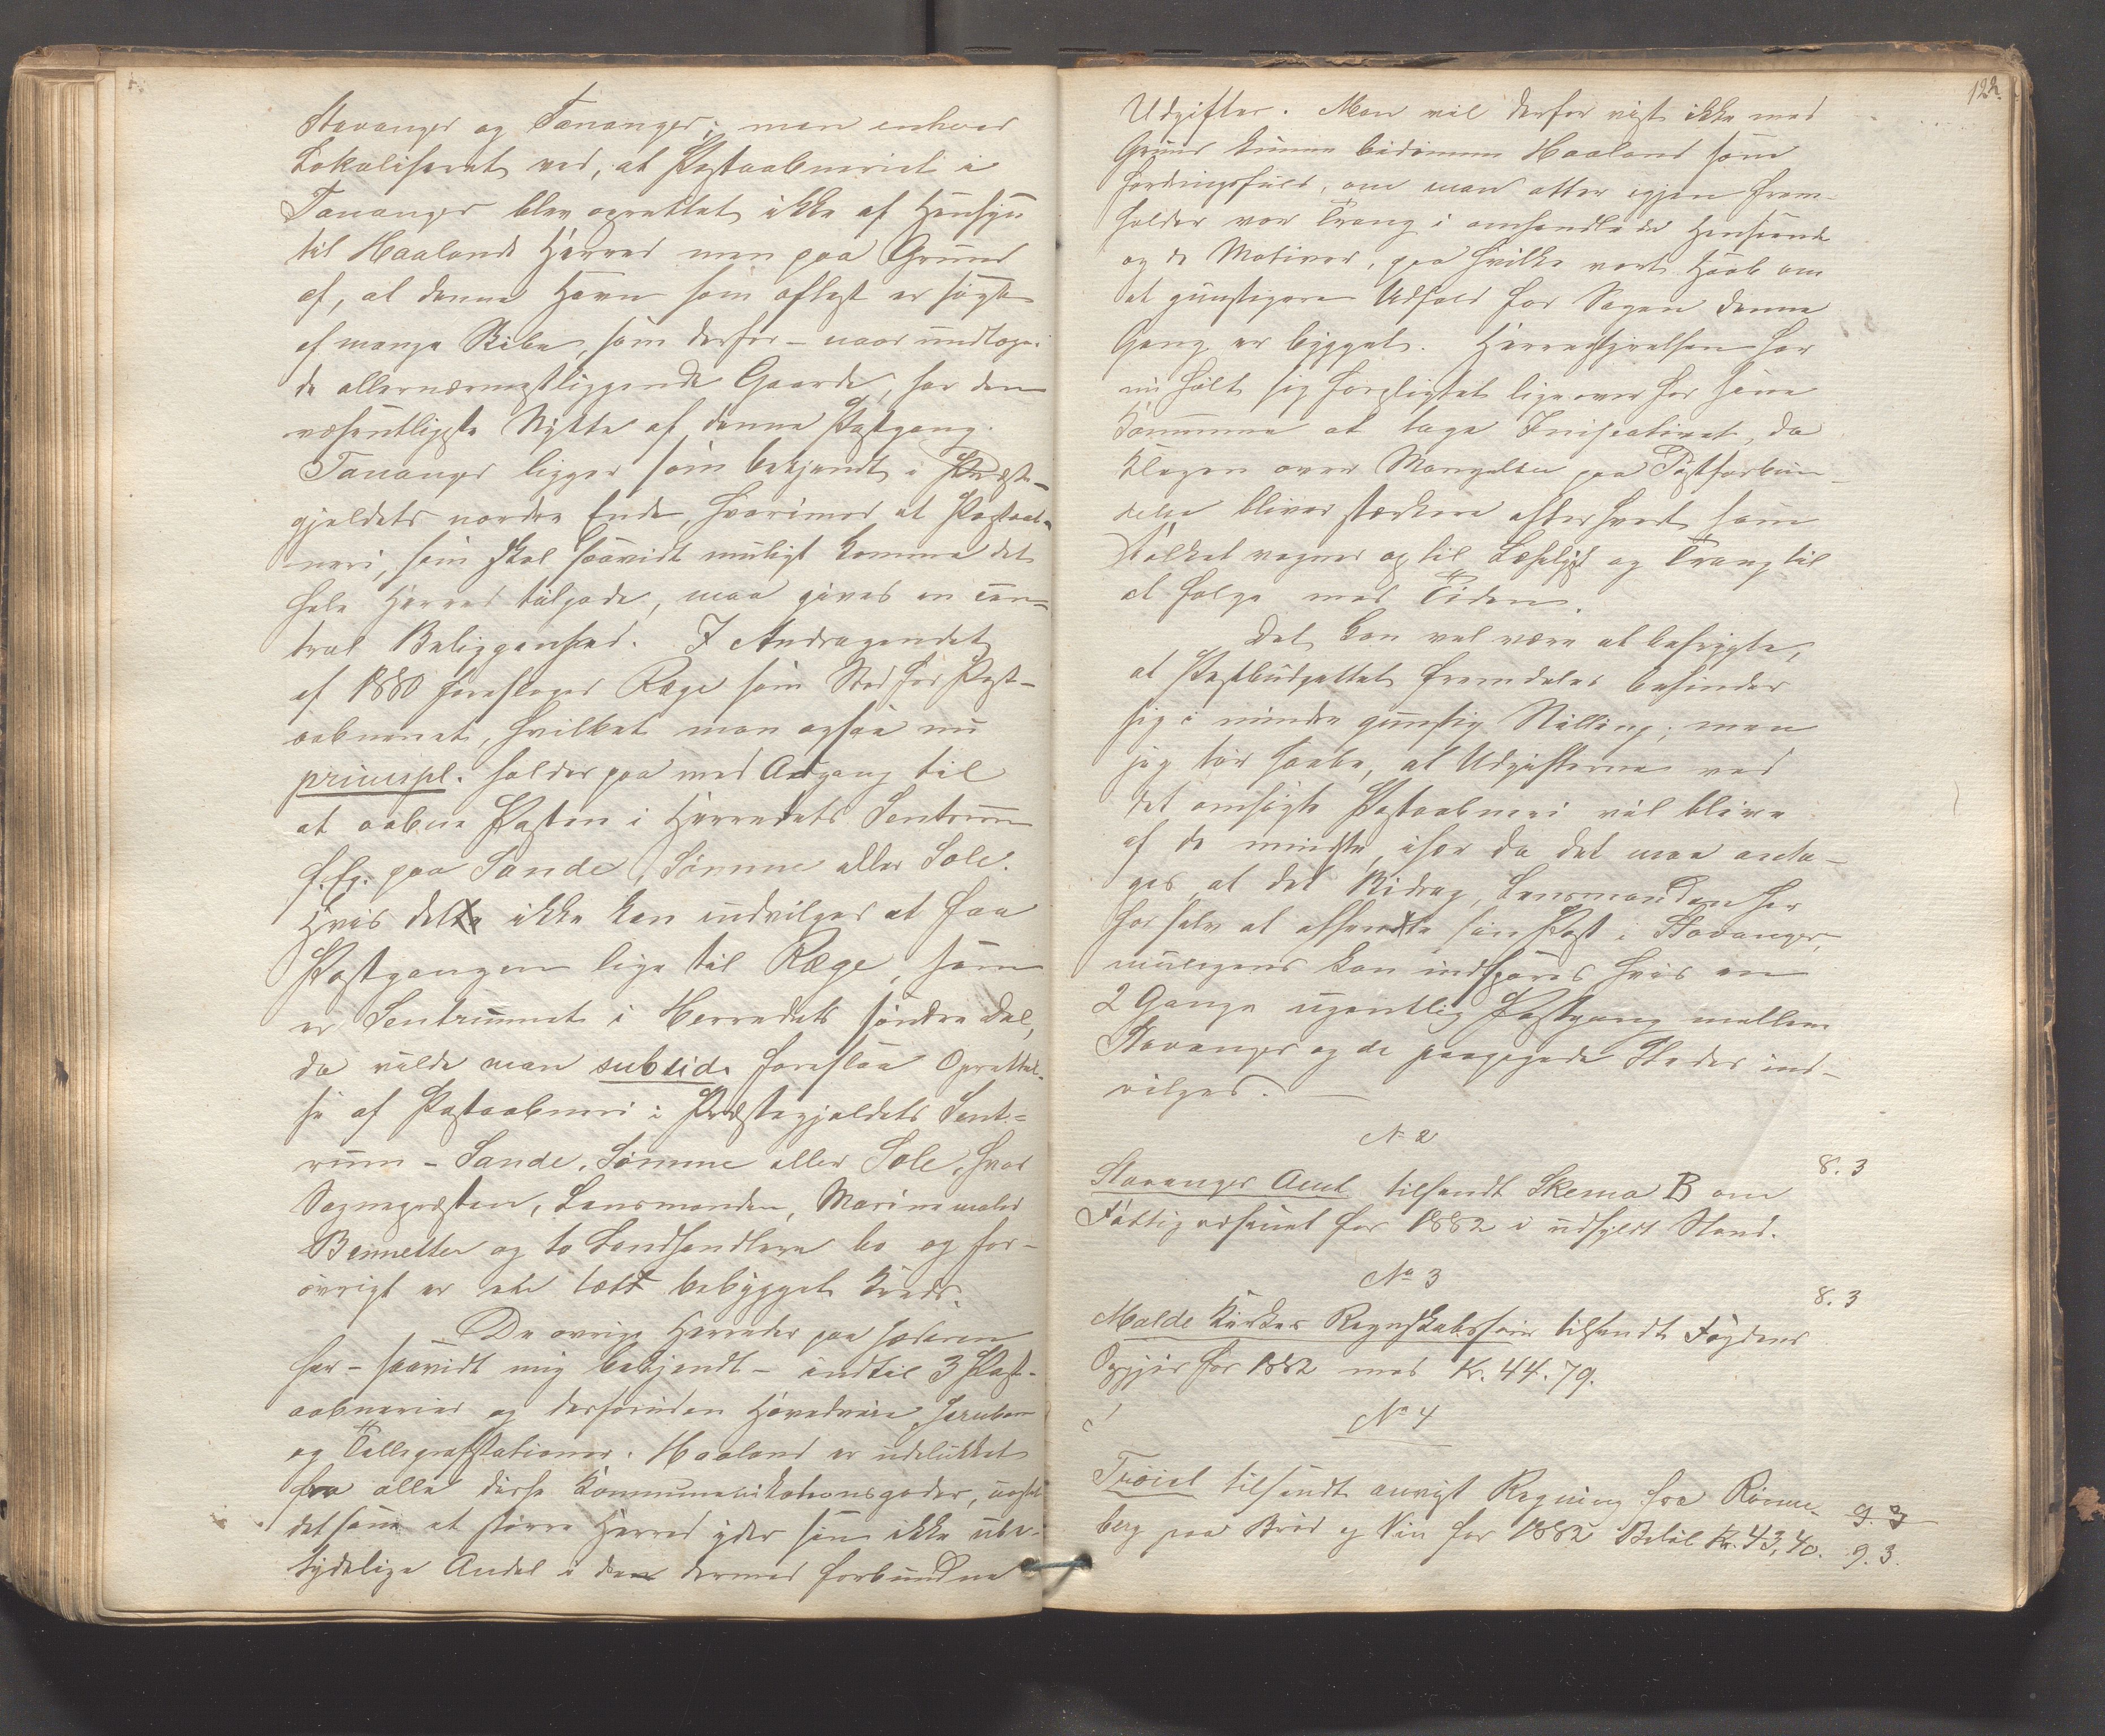 Stavanger og Tananger; men enhver
Lokaliseret ved, at Postaabneriet i
Tananger blev oprettet ikke af Hensyn
til Haalands Herred men paa Grund
af, at denne Havn som oftest er søgt
af mange Skibe, som derfor – naar undtages
de allernærmestliggende Gaarde, har den
væsentligste Nytte af denne Postgang.
Tananger ligger som bekjendt i Præste-
gjeldets nordre Ende, hvorimod et Postaab-
neri, som skal saavidt muligt komme det
hele Herred tilgode, maa gives en cen-
tral Beliggenhed. I Andragendet
af 1880 foresloges Ræge som Sted for Post-
aabneriet, hvilket man ogsaa nu
principl. holder paa med Adgang til
at aabne Posten i Herredets Sentrum
f. Ex. paa Sande, Sømme eller Sole.
Hvis dette ikke kan indvilges at faa
Postgangen lige til Ræge, som
er Sentrumet i Herredets søndre Del,
da vilde man subsid. foreslaa Oprettel-
se af Postaabneri i Præstegjeldets Sent-
rum – Sande, Sømme eller Sole, hvor
Sognepræsten, Lensmanden, Marinemaler
Bennetter og to Landhandlere bo og for-
øvrigt er tæt bebygget Kreds.
De øvrige Herreder paa Jæderen
har – saavidt mig bekjendt – indtil 3 Post-
aabnerier og desforuden Hovedveie Jernbane
og Tellegrafstationer. Haaland er udelukket
fra alle disse Kommunikationsgoder, uagtet
det som et større Herred yder sin ikke ube-
tydelige Andel i den dermed forbundne
122.
Udgifter. Man vil derfor vist ikke med
Grund kunne bedømme Haaland som
fordringsfuld, om man atter igjen frem-
holder vor Trang i omhandlede Henseende
og de Motiver, paa hvilke vort Haab om
et gunstigere Udfald for Sagen denne
Gang er bygget. Herredstyrelsen har
nu følt sig forpligtet lige over for sine
Kommune at tage Inisiativet, da
Klagen over Mangelen paa Postforbin-
delse bliver stærkere efterhvert som
Folket vogner op til Læselyst og Trang til
at følge med Tiden.
Det kan vel være at befrygte,
at Postbudgettet fremdeles befinder
sig i mindre gunstig Stilling; men
jeg tør haabe, at Udgifterne ved
det ansøgte Postaabneri vil blive
af de mindste, især da det maa anta-
ges, at det Bidrag, Lensmanden har
for selv at afhente sin Post i Stavanger,
muligens kan indspares hvis en
2 Gange ugentlig Postgang mellem
Stavanger og de paagjeldende Steder ind-
vilges.
No 2
Stavanger Amt tilsendt Skema B om 8. 3
Fattigvæsenet for 1882 i udfyldt Stand.
No 3
Malde Kirkes Regnskabsfører tilsendt Fogdens 8. 3
Opgjør for 1882 med Kr. 44.79.
No 4
Trøiel tilsendt anvist Regning fra Rønne- 9. 3
berg paa Brød og Vin for 1882 Beløb Kr. 43,40. 9. 3.